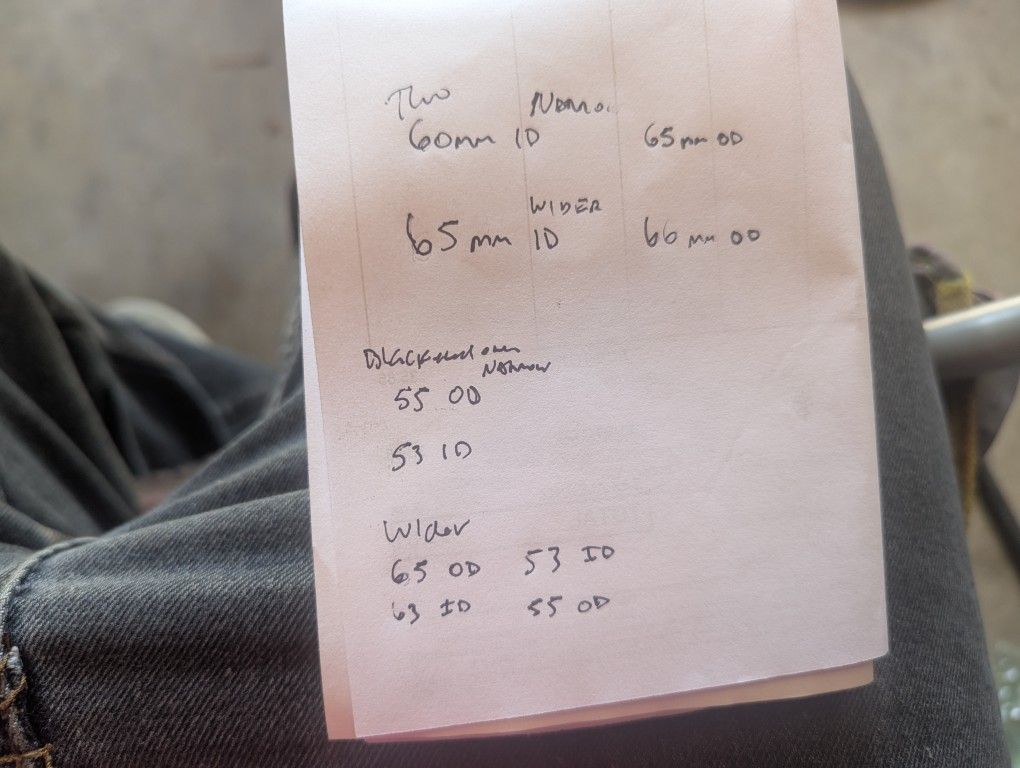 Two Narro
60mm ID 65mm OD
WIDER
65mm ID 66mm OD
Black
Narrow
55 OD
53 ID
Wider
65 OD 53 ID
63 ID 55 OD